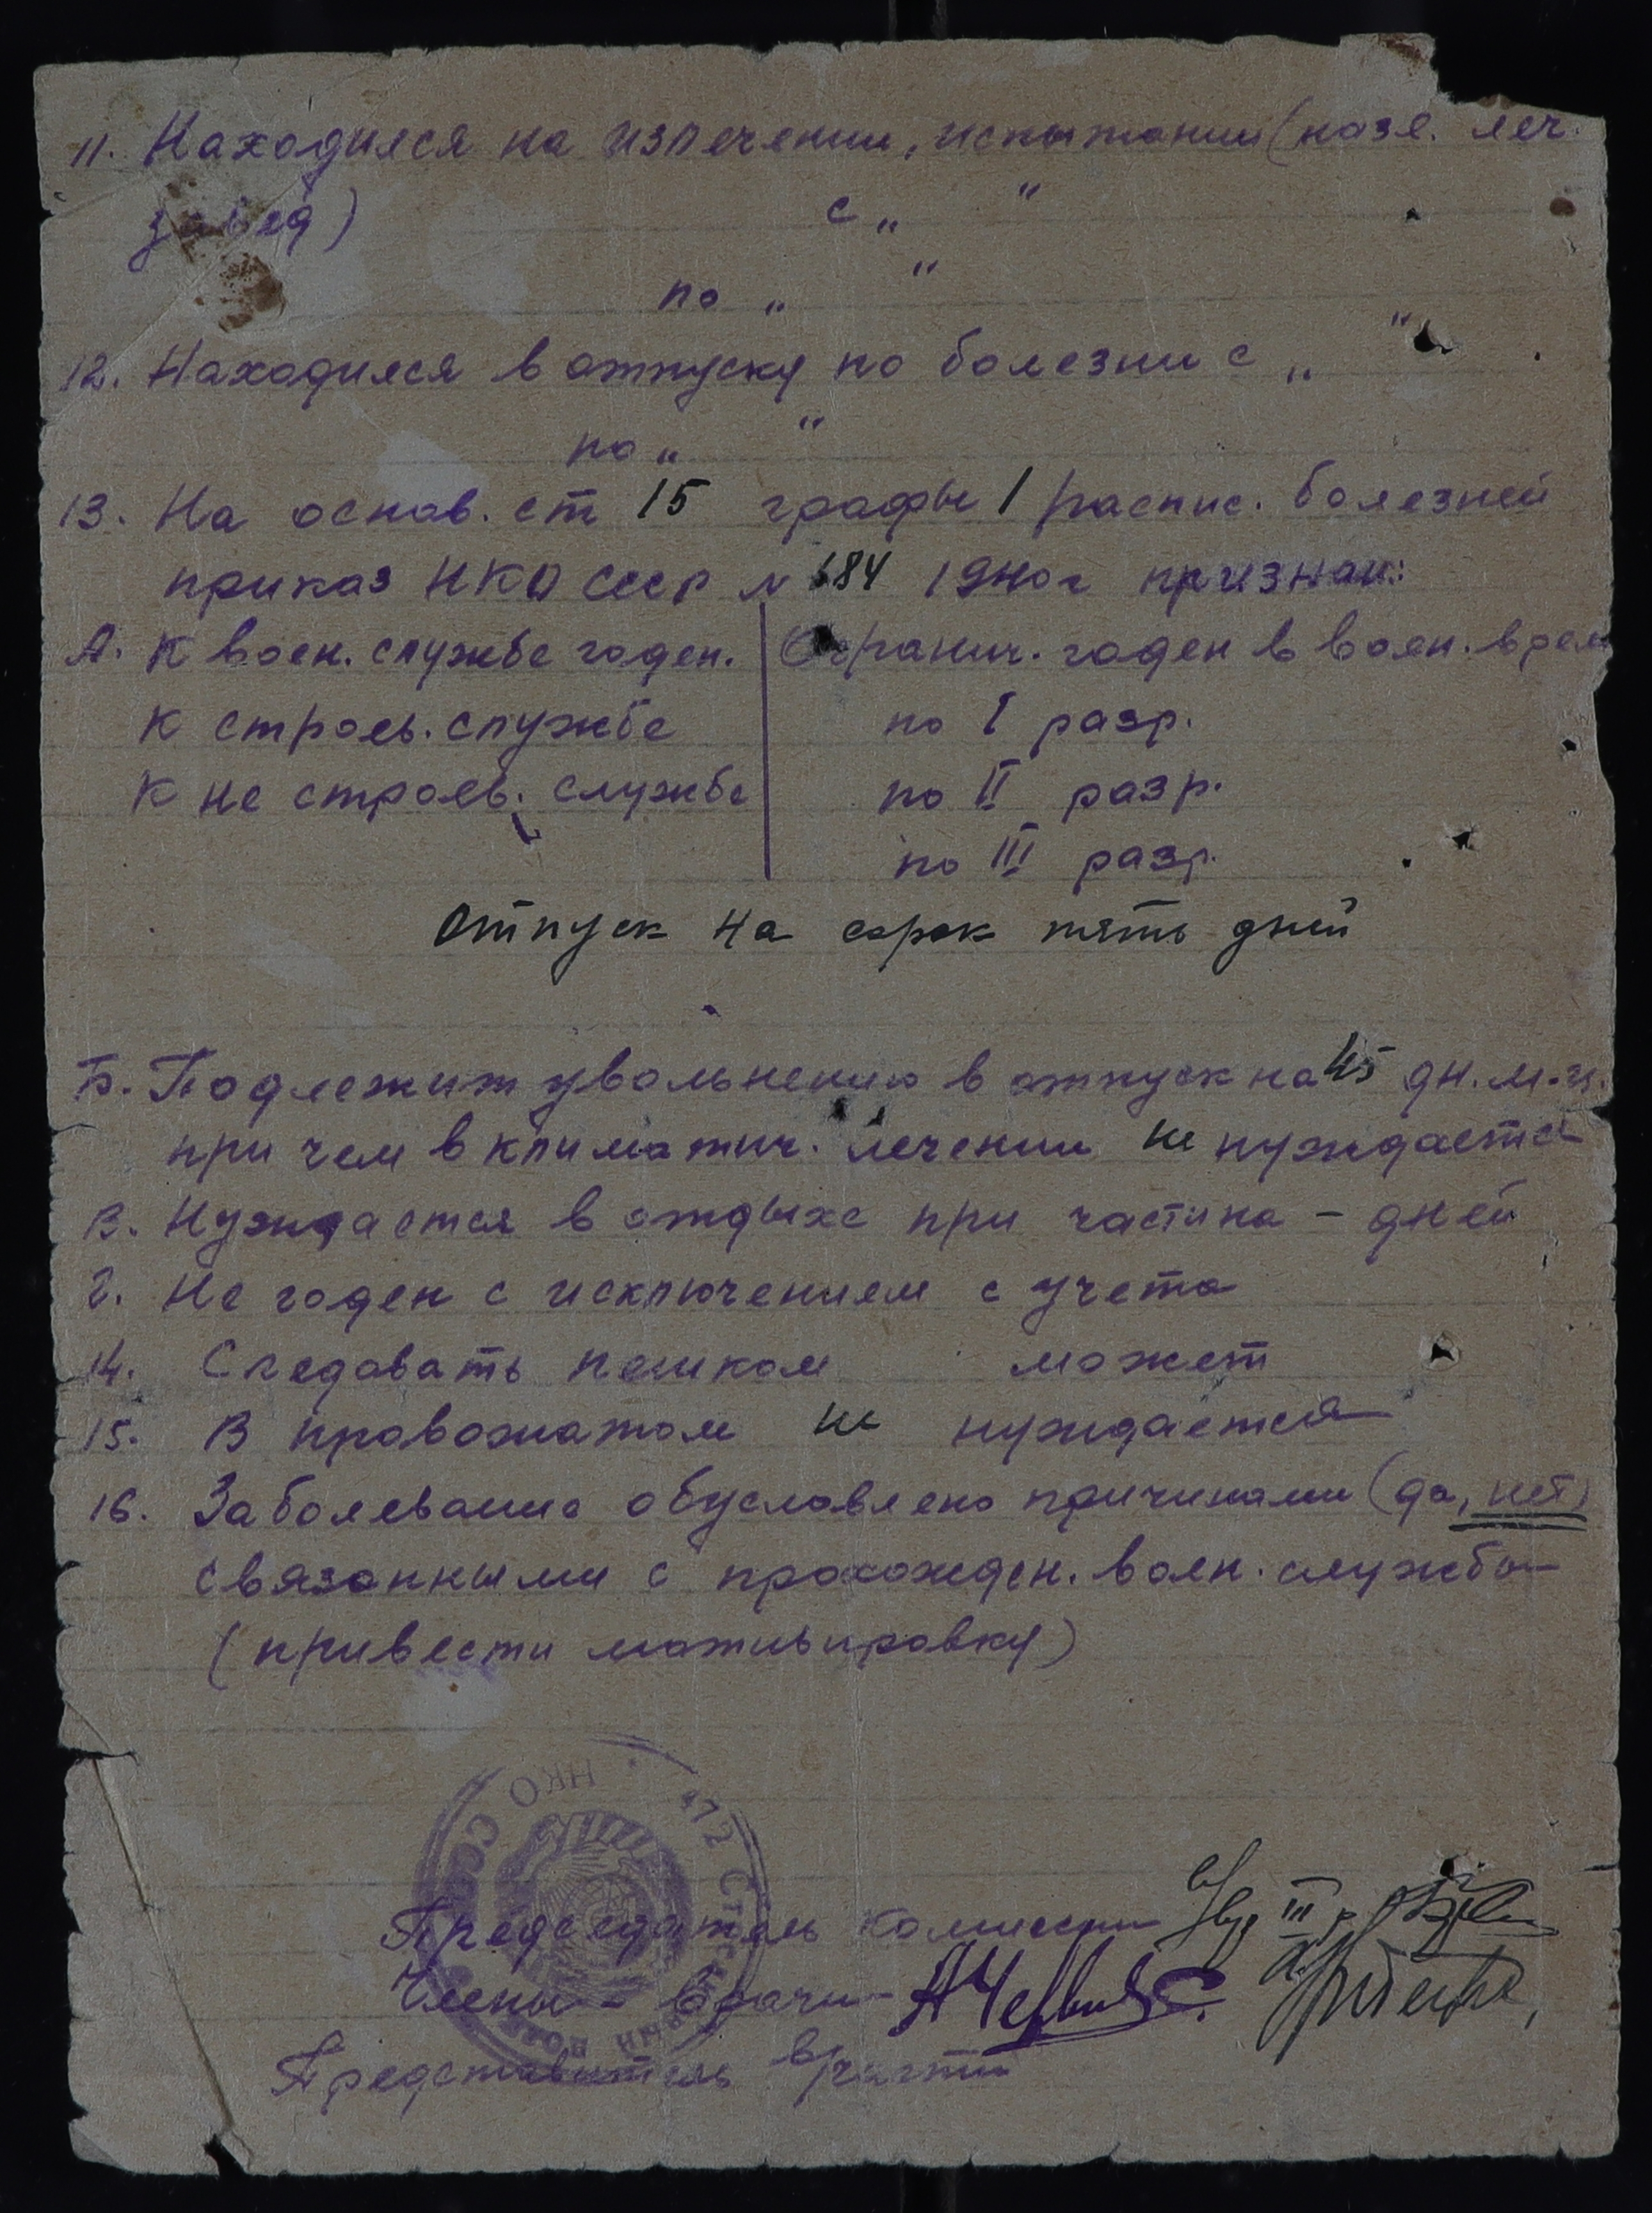 11. Находился на излечении, испытании (назв. леч.
завед)                    с „    "
по „    "
12. Находился в отпуску по болезни с „    "
по „    "
13. На основ. ст 15 графы 1 распис. болезней
приказ НКО СССР № 184 1940г признан:
А. К воен. службе годен. | Огранич. годен в воен. врем
К строев. службе | по I разр.
К не строев. службе | по II разр.
по III разр.
Отпуск на сорок пять дней
Б. Подлежит увольнению в отпуск на 45 дн. м-ц.
при чем в климатич. лечении не нуждается
В. Нуждается в отдыхе при части на – дней
Г. Не годен с исключением с учета
14. Следовать пешком может
15. В провожатом не нуждается
16. Заболевание обусловлено причинами (да, нет)
связанными с прохожден. воен. службы
(привести мотивировку)
НКО СССР 472
Председатель комиссии
Члены – врачи –
Представитель в/части